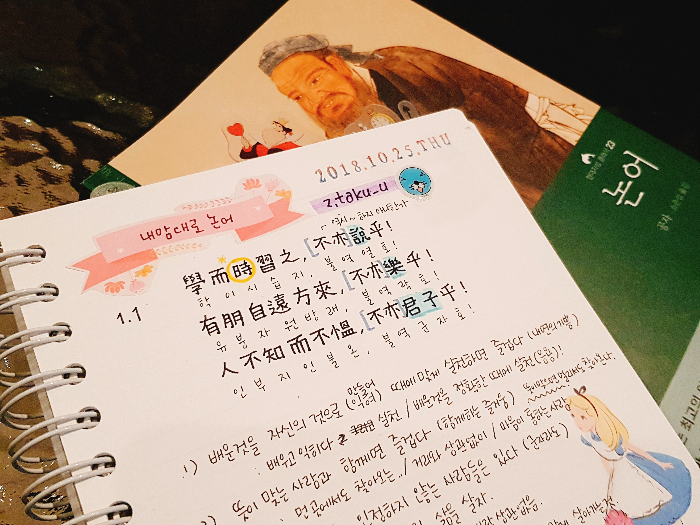 2018.10.25.THU
z.taku_u
내맘대로 논어
~ 역시~ 하지 아니한가
1.1
學而時習之, [不亦說乎!
학 이 시 습 지, 불 역 열 호!
有朋自遠方來, [不亦樂乎!
유 붕 자 원 방 래, 불 역 락 호!
人不知而不慍, [不亦君子乎!
인 부 지 이 불 온, 불 역 군 자 호!
1) 배운것을 자신의 것으로 (익혀) 만들어 때에 맞게 실천하면 즐겁다 (내면의기쁨)
: 배우고 익히다 2 실천 / 배운것을 정확한 때에 실천
뜻이 맞는 사람과 함께면 즐겁다 (함께하는 즐거움)
: 먼곳에서도 찾아온 / 거리와 상관없이 / 마음이 통하는 사람
인정하지 않는 사람들은 있다 (군자의도)
삶을 살자.
상관 없음.
논어
공자